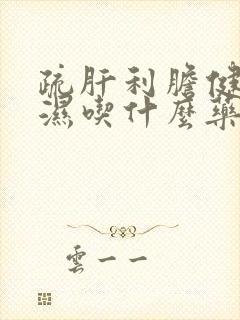 疏肝利膽健
濕喫什麼藥
雲一一